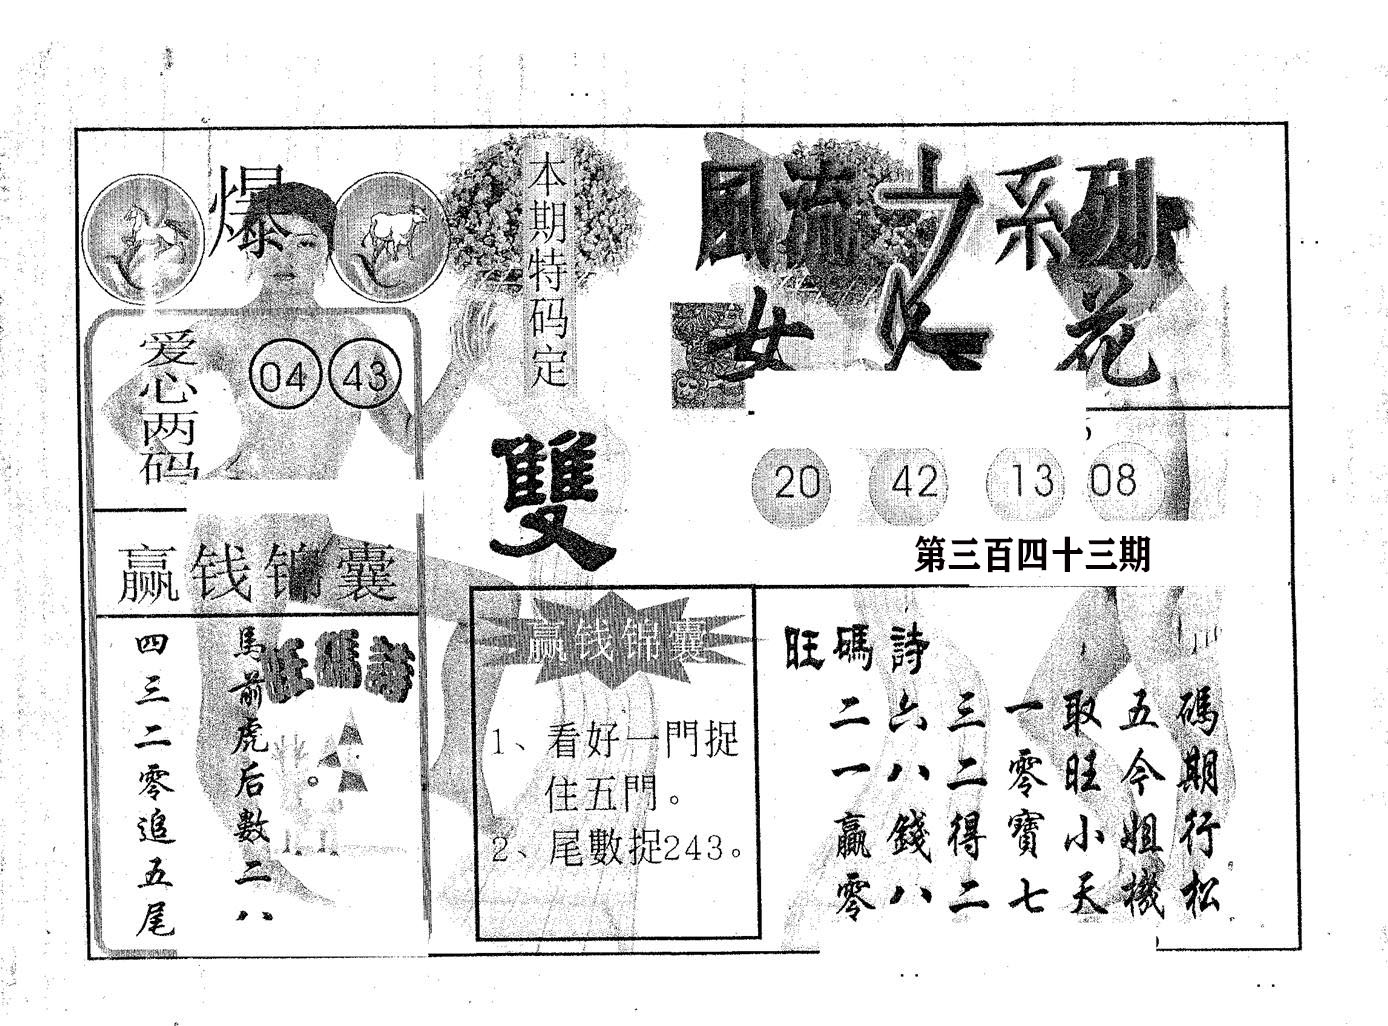 爆
本期特码定
雙
风流之系列
女人花
爱心两码
04 43
20 42 13 08
第三百四十三期
赢钱锦囊
旺碼詩
馬前虎后数二八
四三二零追五尾
赢钱锦囊
1、看好一門捉
住五門。
2、尾數捉243。
旺碼詩
二六三一取五碼
一八二零旺今期
贏錢得寶小姐行
零八二七天機松